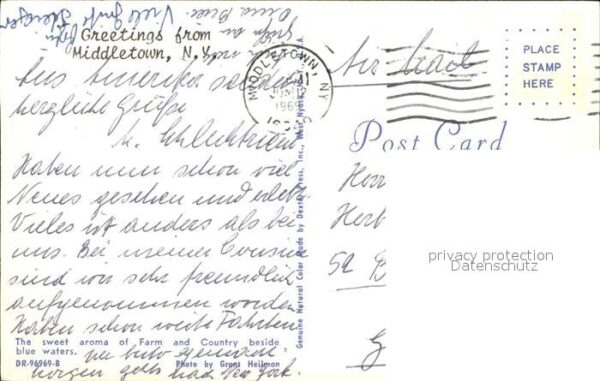 Viele Grüße
Greetings from
Middletown, N.Y.
Aus Amerika senden
herzliche Grüße
Haben nun schon viel
Neues gesehen und erlebt
Vieles ist anders als bei
uns. Bei meiner Cousine
sind wir sehr freundlich
aufgenommen worden
Haben schon weite Fahrten
gemacht
morgen gehts nach New York.
The sweet aroma of Farm and Country beside
blue waters.
DR-96969-B
Photo by Grant Heilman
Genuine Natural Color Made by Dexter Press, Inc., West Nyack, N.Y.
MIDDLETOWN NY
1969
Air Mail
PLACE
STAMP
HERE
Post Card
privacy protection
Datenschutz